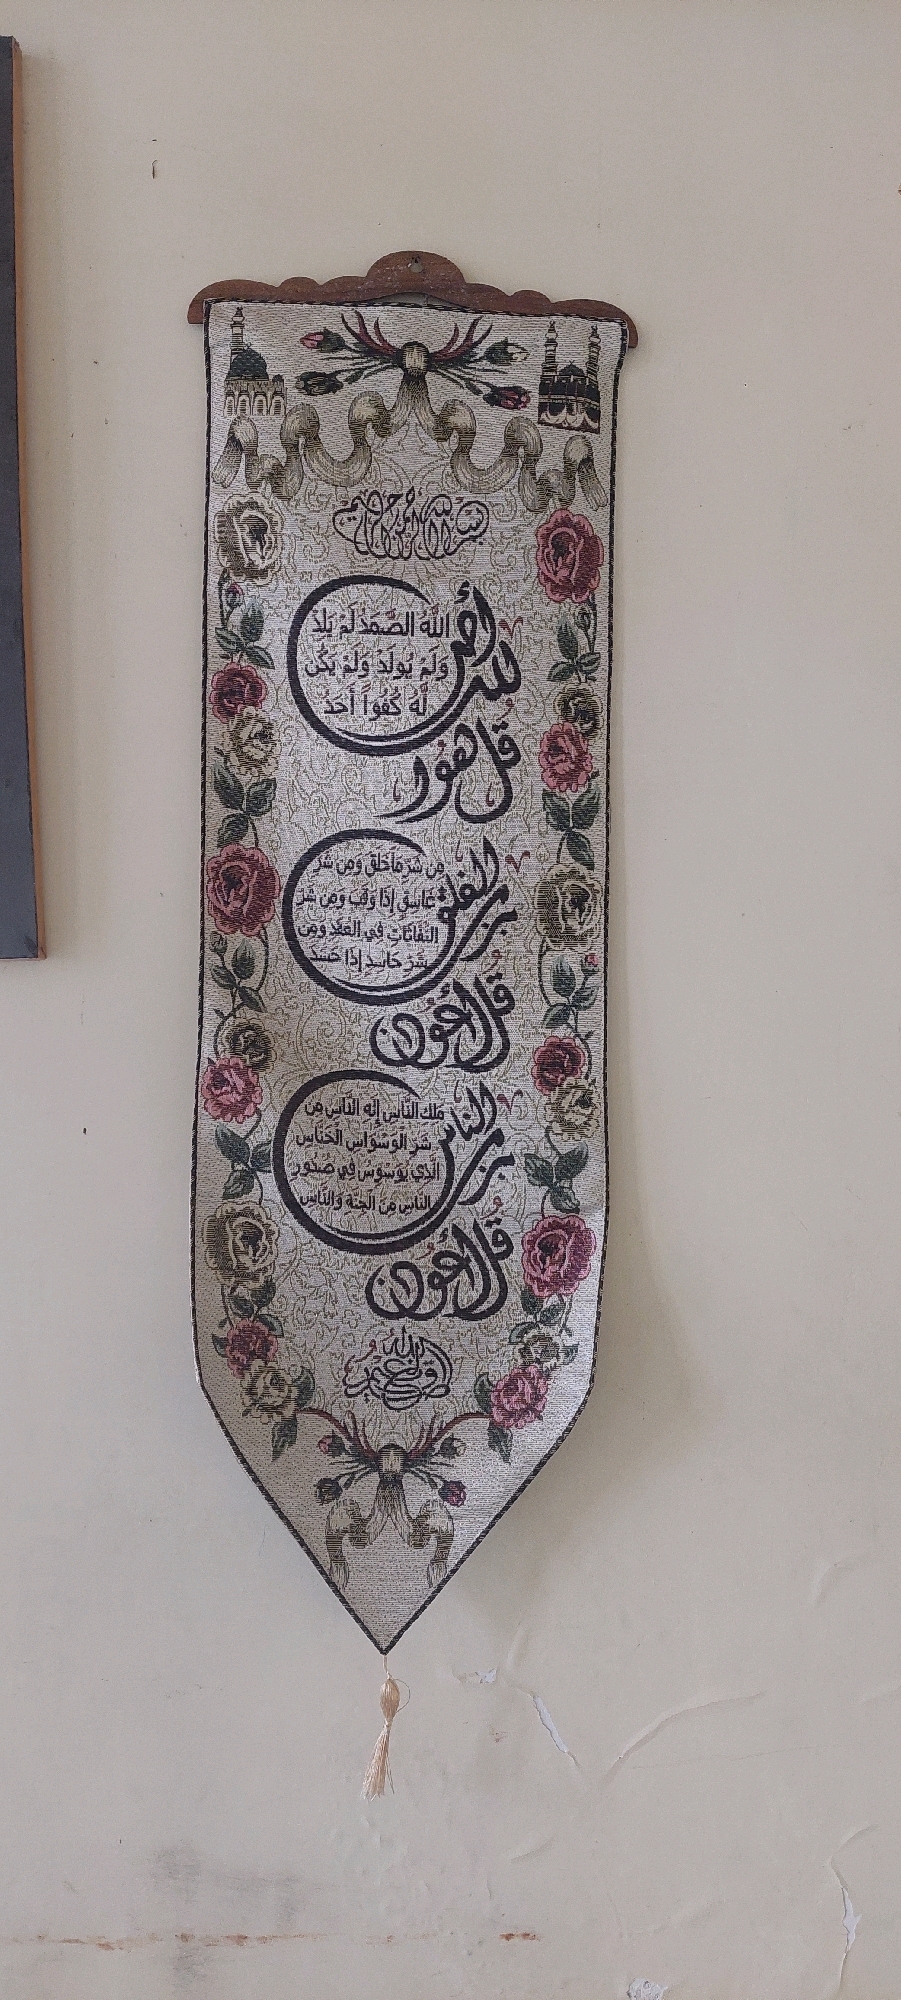 بسم الله الرحمن الرحيم
قل هو الله أحد
الله الصمد لم يلد
ولم يولد ولم يكن
له كفوا أحد
قل أعوذ برب الفلق
من شر ما خلق ومن شر
غاسق إذا وقب ومن شر
النفاثات في العقد ومن
شر حاسد إذا حسد
قل أعوذ برب الناس
ملك الناس إله الناس من
شر الوسواس الخناس
الذي يوسوس في صدور
الناس من الجنة والناس
صدق الله العظيم